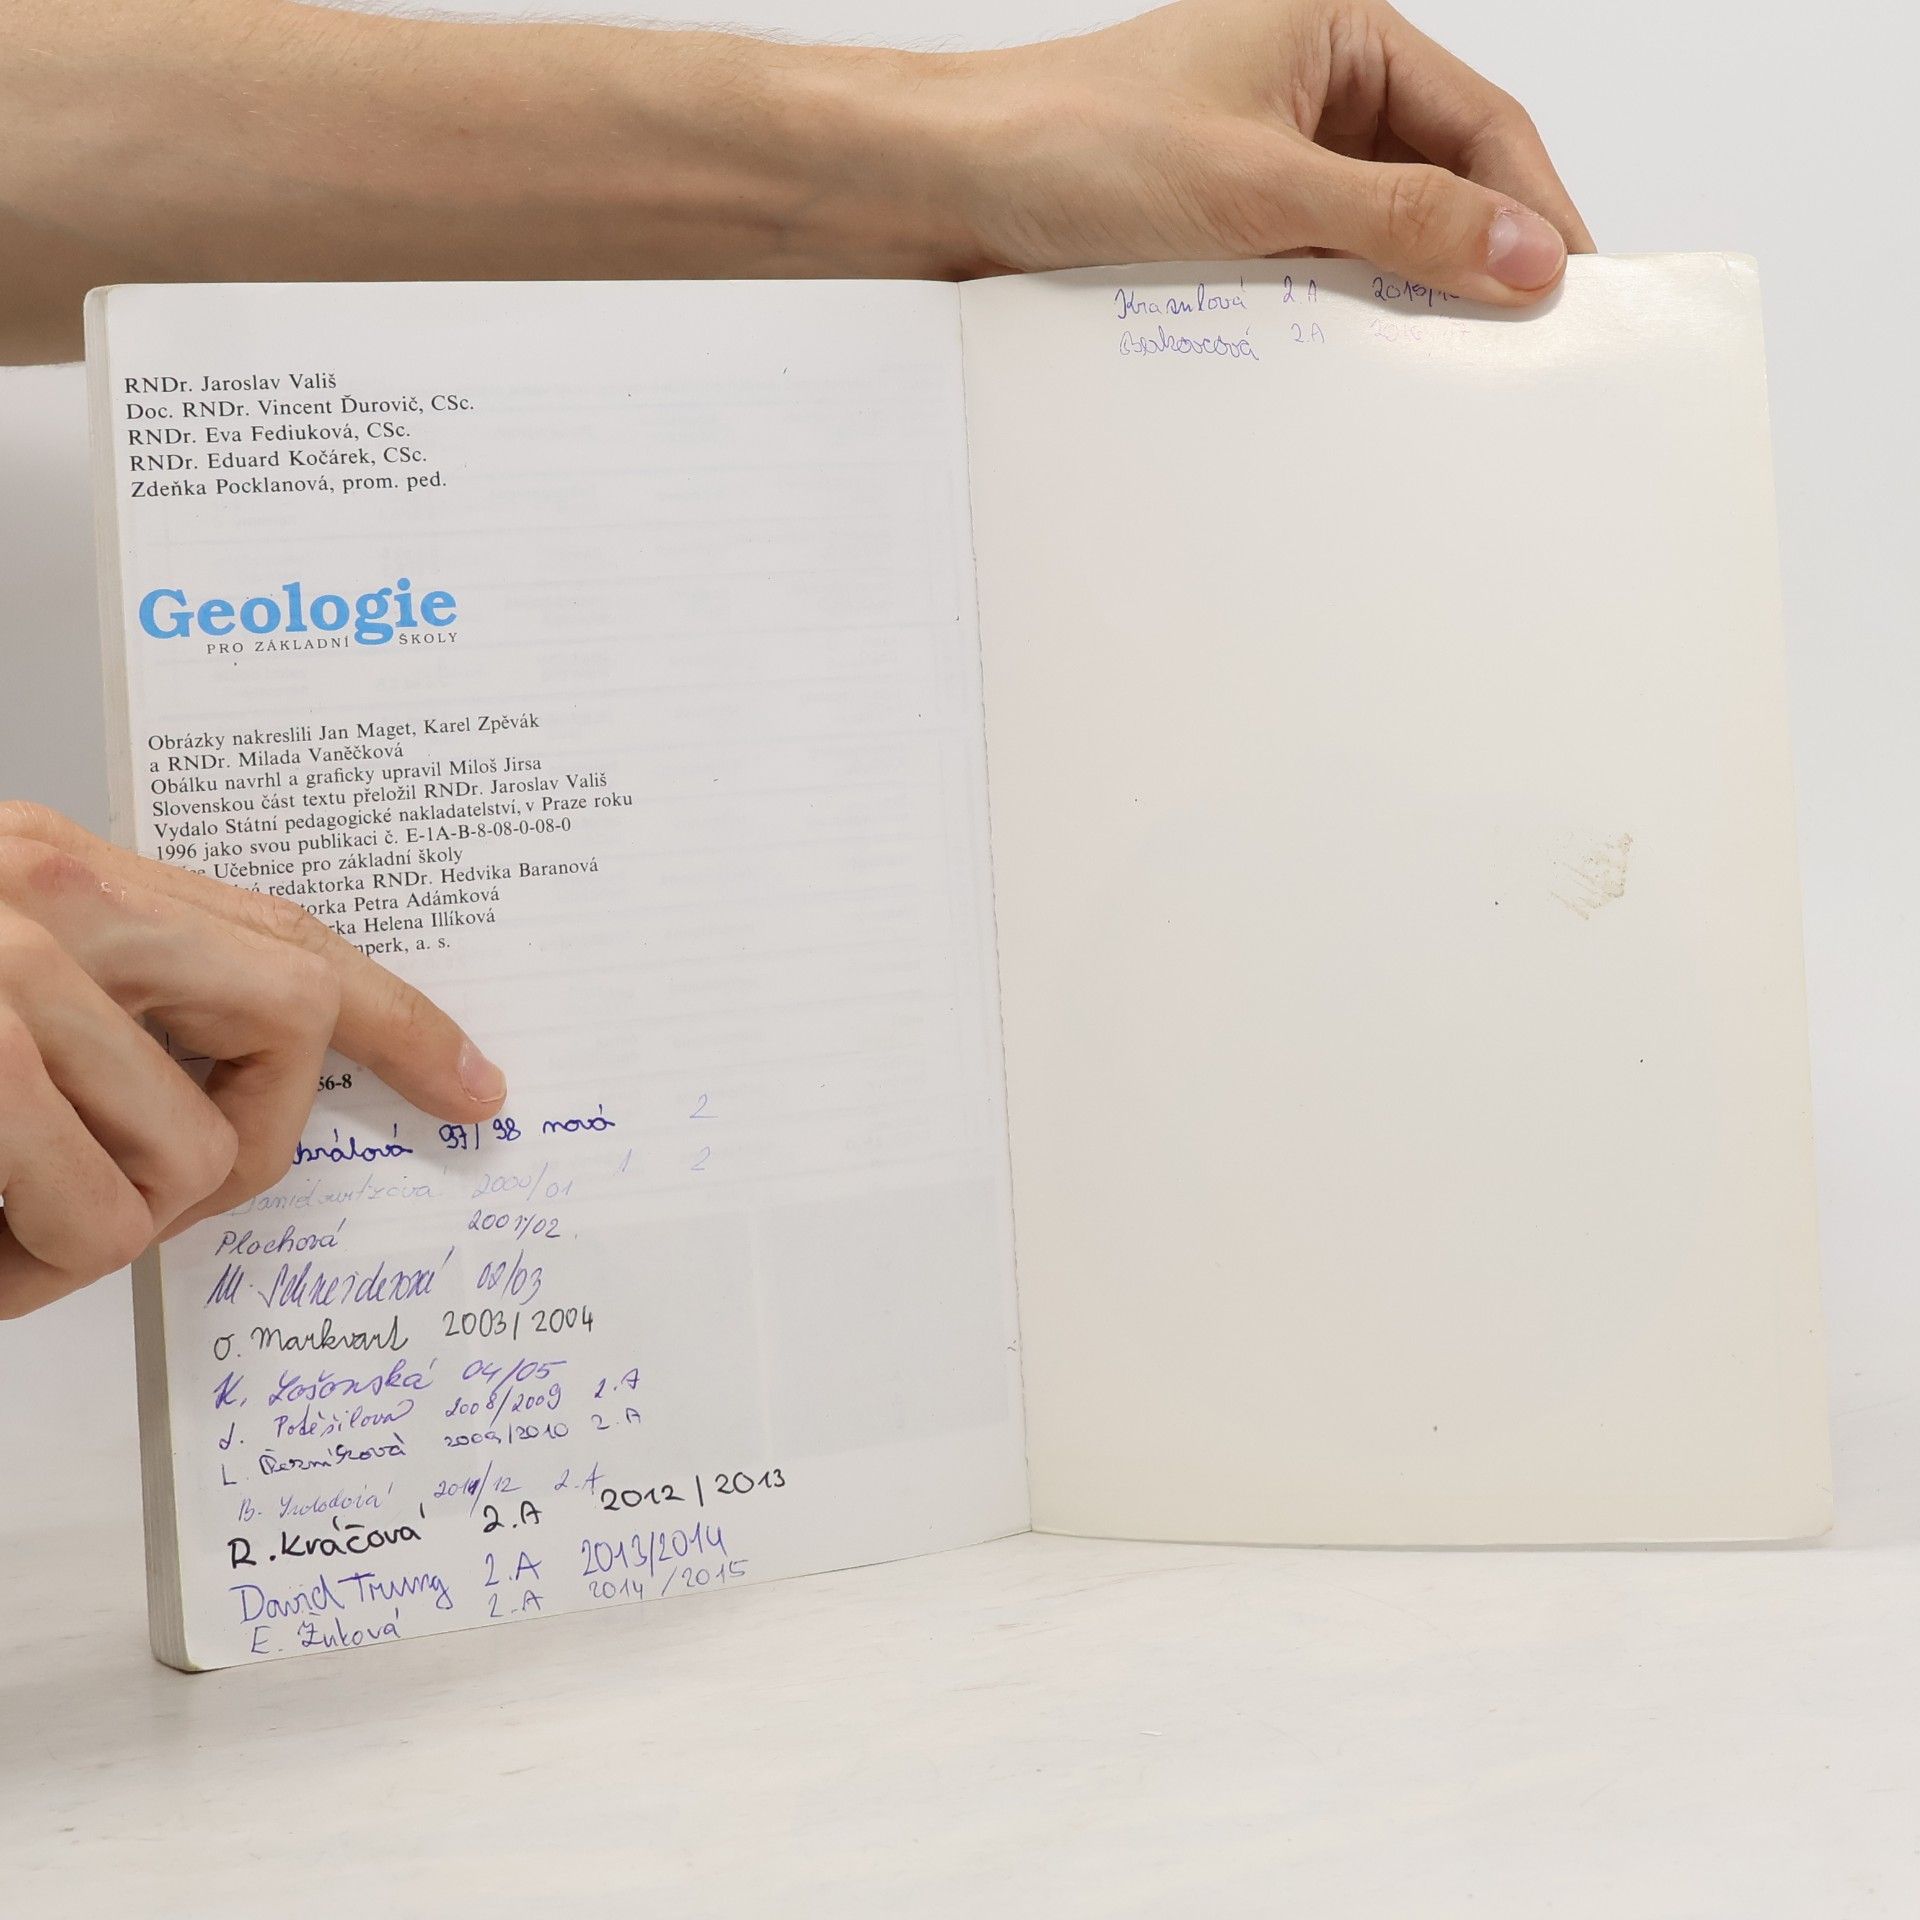 RNDr. Jaroslav Vališ
Doc. RNDr. Vincent Ďurovič, CSc.
RNDr. Eva Fediuková, CSc.
RNDr. Eduard Kočárek, CSc.
Zdeňka Pocklanová, prom. ped.
Geologie
PRO ZÁKLADNÍ ŠKOLY
Obrázky nakreslili Jan Maget, Karel Zpěvák
a RNDr. Milada Vaněčková
Obálku navrhl a graficky upravil Miloš Jirsa
Slovenskou část textu přeložil RNDr. Jaroslav Vališ
Vydalo Státní pedagogické nakladatelství, v Praze roku
1996 jako svou publikaci č. E-1A-B-8-08-0-08-0
Učebnice pro základní školy
redaktorka RNDr. Hedvika Baranová
Petra Adámková
Helena Illíková
a. s.
56-8
97/98 nová 2
2000/01 1 2
Plochová 2001/02
M. Schneiderová 02/03
O. Markvart 2003/2004
K. Lošonská 04/05
J. Potěšilová 2008/2009 2.A
L. Řezníčková 2009/2010 2.A
B. 2011/12 2.A
R. Kráčová 2.A 2012/2013
David Trung 2.A 2013/2014
E. Žuková 2.A 2014/2015
Krasulová 2.A
2.A